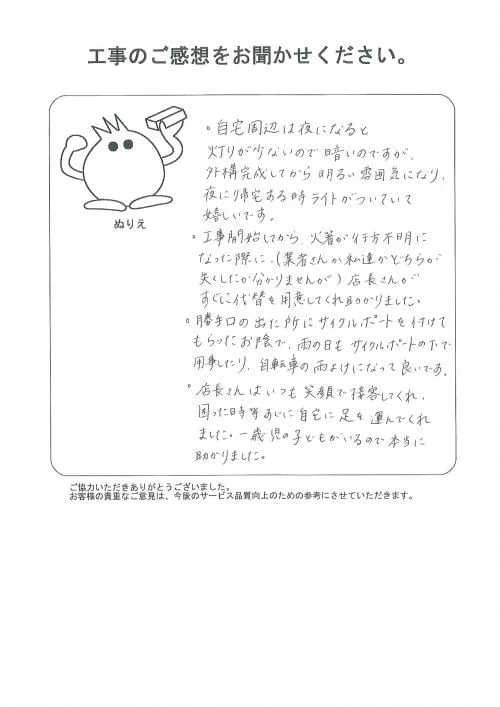 工事のご感想をお聞かせください。
ぬりえ
。自宅周辺は夜になると
灯りが少ないので暗いのですが、
外構完成してから明るい雰囲気になり、
夜に帰宅する時ライトがついていて
嬉しいです。
。工事開始してから、火着が行方不明に
なった際に、(業者さんか私達かどちらが
失くしたか分かりませんが)店長さんが
すぐに代替を用意してくれ助かりました。
。勝手口の出た所にサイクルポートを付けて
もらったお陰で、雨の日もサイクルポートの下で
用事したり、自転車の雨よけになって良いです。
。店長さんはいつも笑顔で接客してくれ、
困った時等すぐに自宅に足を運んでくれ
ました。一歳児の子どもがいるので本当に
助かりました。
ご協力いただきありがとうございました。
お客様の貴重なご意見は、今後のサービス品質向上のための参考にさせていただきます。